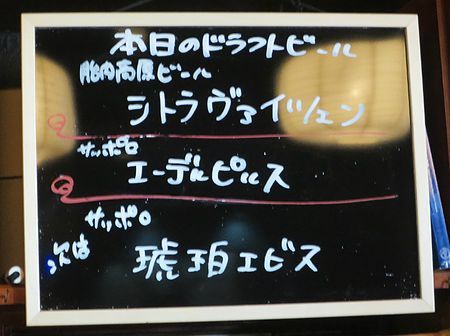 本日のドラフトビール
胎内高原ビール
シトラヴァイツェン
サッポロ
エーデルピルス
サッポロ
次は
琥珀ヱビス